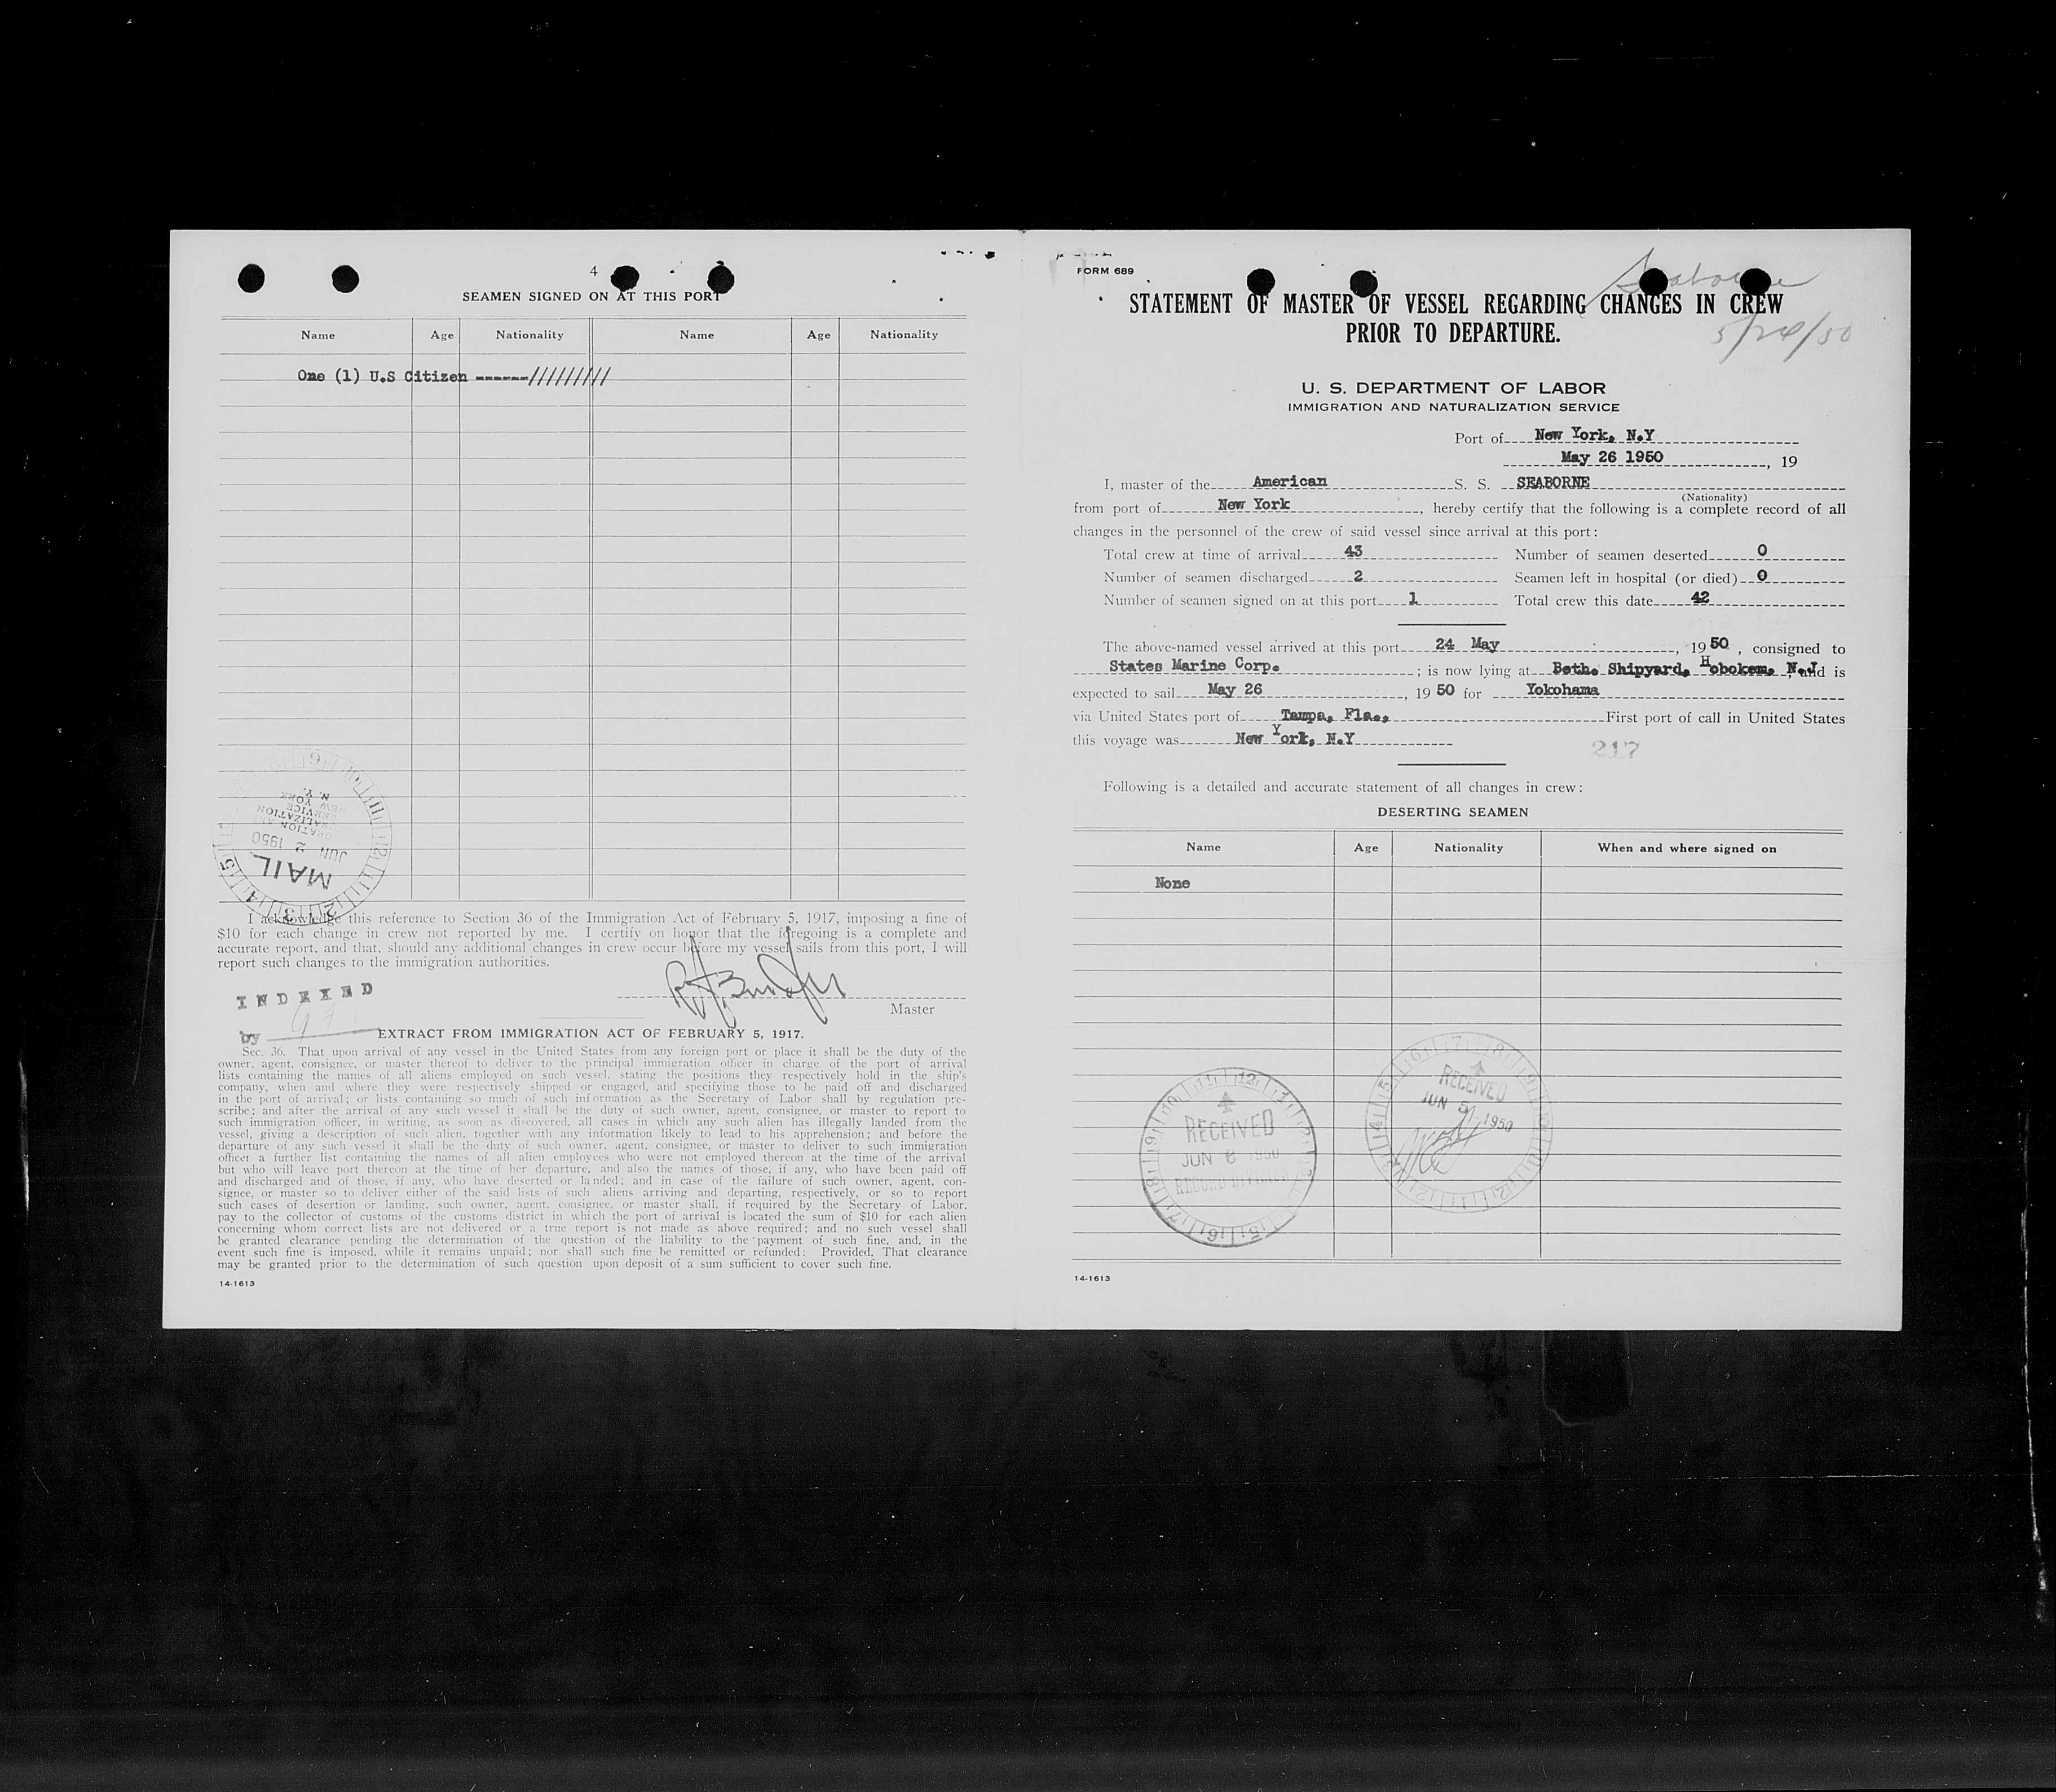 4
SEAMEN SIGNED ON AT THIS PORT
Name Age Nationality Name Age Nationality
One (1) U.S Citizen ------/////////
N. Y.
NEW YORK
SERVICE
JUN 2 1950
MAIL
I acknowledge this reference to Section 36 of the Immigration Act of February 5, 1917, imposing a fine of
$10 for each change in crew not reported by me. I certify on honor that the foregoing is a complete and
accurate report, and that, should any additional changes in crew occur before my vessel sails from this port, I will
report such changes to the immigration authorities.
INDEXED
Master
by
EXTRACT FROM IMMIGRATION ACT OF FEBRUARY 5, 1917.
Sec. 36. That upon arrival of any vessel in the United States from any foreign port or place it shall be the duty of the
owner, agent, consignee, or master thereof to deliver to the principal immigration officer in charge of the port of arrival
lists containing the names of all aliens employed on such vessel, stating the positions they respectively hold in the ship's
company, when and where they were respectively shipped or engaged, and specifying those to be paid off and discharged
in the port of arrival; or lists containing so much of such information as the Secretary of Labor shall by regulation pre-
scribe; and after the arrival of any such vessel it shall be the duty of such owner, agent, consignee, or master to report to
such immigration officer, in writing, as soon as discovered, all cases in which any such alien has illegally landed from the
vessel, giving a description of such alien, together with any information likely to lead to his apprehension; and before the
departure of any such vessel it shall be the duty of such owner, agent, consignee, or master to deliver to such immigration
officer a further list containing the names of all alien employees who were not employed thereon at the time of the arrival
but who will leave port thereon at the time of her departure, and also the names of those, if any, who have been paid off
and discharged and of those, if any, who have deserted or landed; and in case of the failure of such owner, agent, con-
signee, or master so to deliver either of the said lists of such aliens arriving and departing, respectively, or so to report
such cases of desertion or landing, such owner, agent, consignee, or master shall, if required by the Secretary of Labor,
pay to the collector of customs of the customs district in which the port of arrival is located the sum of $10 for each alien
concerning whom correct lists are not delivered or a true report is not made as above required; and no such vessel shall
be granted clearance pending the determination of the question of the liability to the payment of such fine, and, in the
event such fine is imposed, while it remains unpaid; nor shall such fine be remitted or refunded: Provided, That clearance
may be granted prior to the determination of such question upon deposit of a sum sufficient to cover such fine.
14-1613
FORM 689
Seaborne
STATEMENT OF MASTER OF VESSEL REGARDING CHANGES IN CREW
PRIOR TO DEPARTURE.
5/24/50
U. S. DEPARTMENT OF LABOR
IMMIGRATION AND NATURALIZATION SERVICE
Port of New York, N.Y
May 26 1950, 19
I, master of the American S. S. SEABORNE
(Nationality)
from port of New York, hereby certify that the following is a complete record of all
changes in the personnel of the crew of said vessel since arrival at this port:
Total crew at time of arrival 43 Number of seamen deserted 0
Number of seamen discharged 2 Seamen left in hospital (or died) 0
Number of seamen signed on at this port 1 Total crew this date 42
The above-named vessel arrived at this port 24 May, 19 50, consigned to
States Marine Corp.; is now lying at Beth. Shipyard, Hoboken, N.J, and is
expected to sail May 26, 19 50 for Yokohama
via United States port of Tampa, Fla., First port of call in United States
this voyage was New York, N.Y
217
Following is a detailed and accurate statement of all changes in crew:
DESERTING SEAMEN
Name Age Nationality When and where signed on
None
RECEIVED
JUN 5 1950
RECEIVED
JUN 6 1950
RECORD DIVISION
14-1613